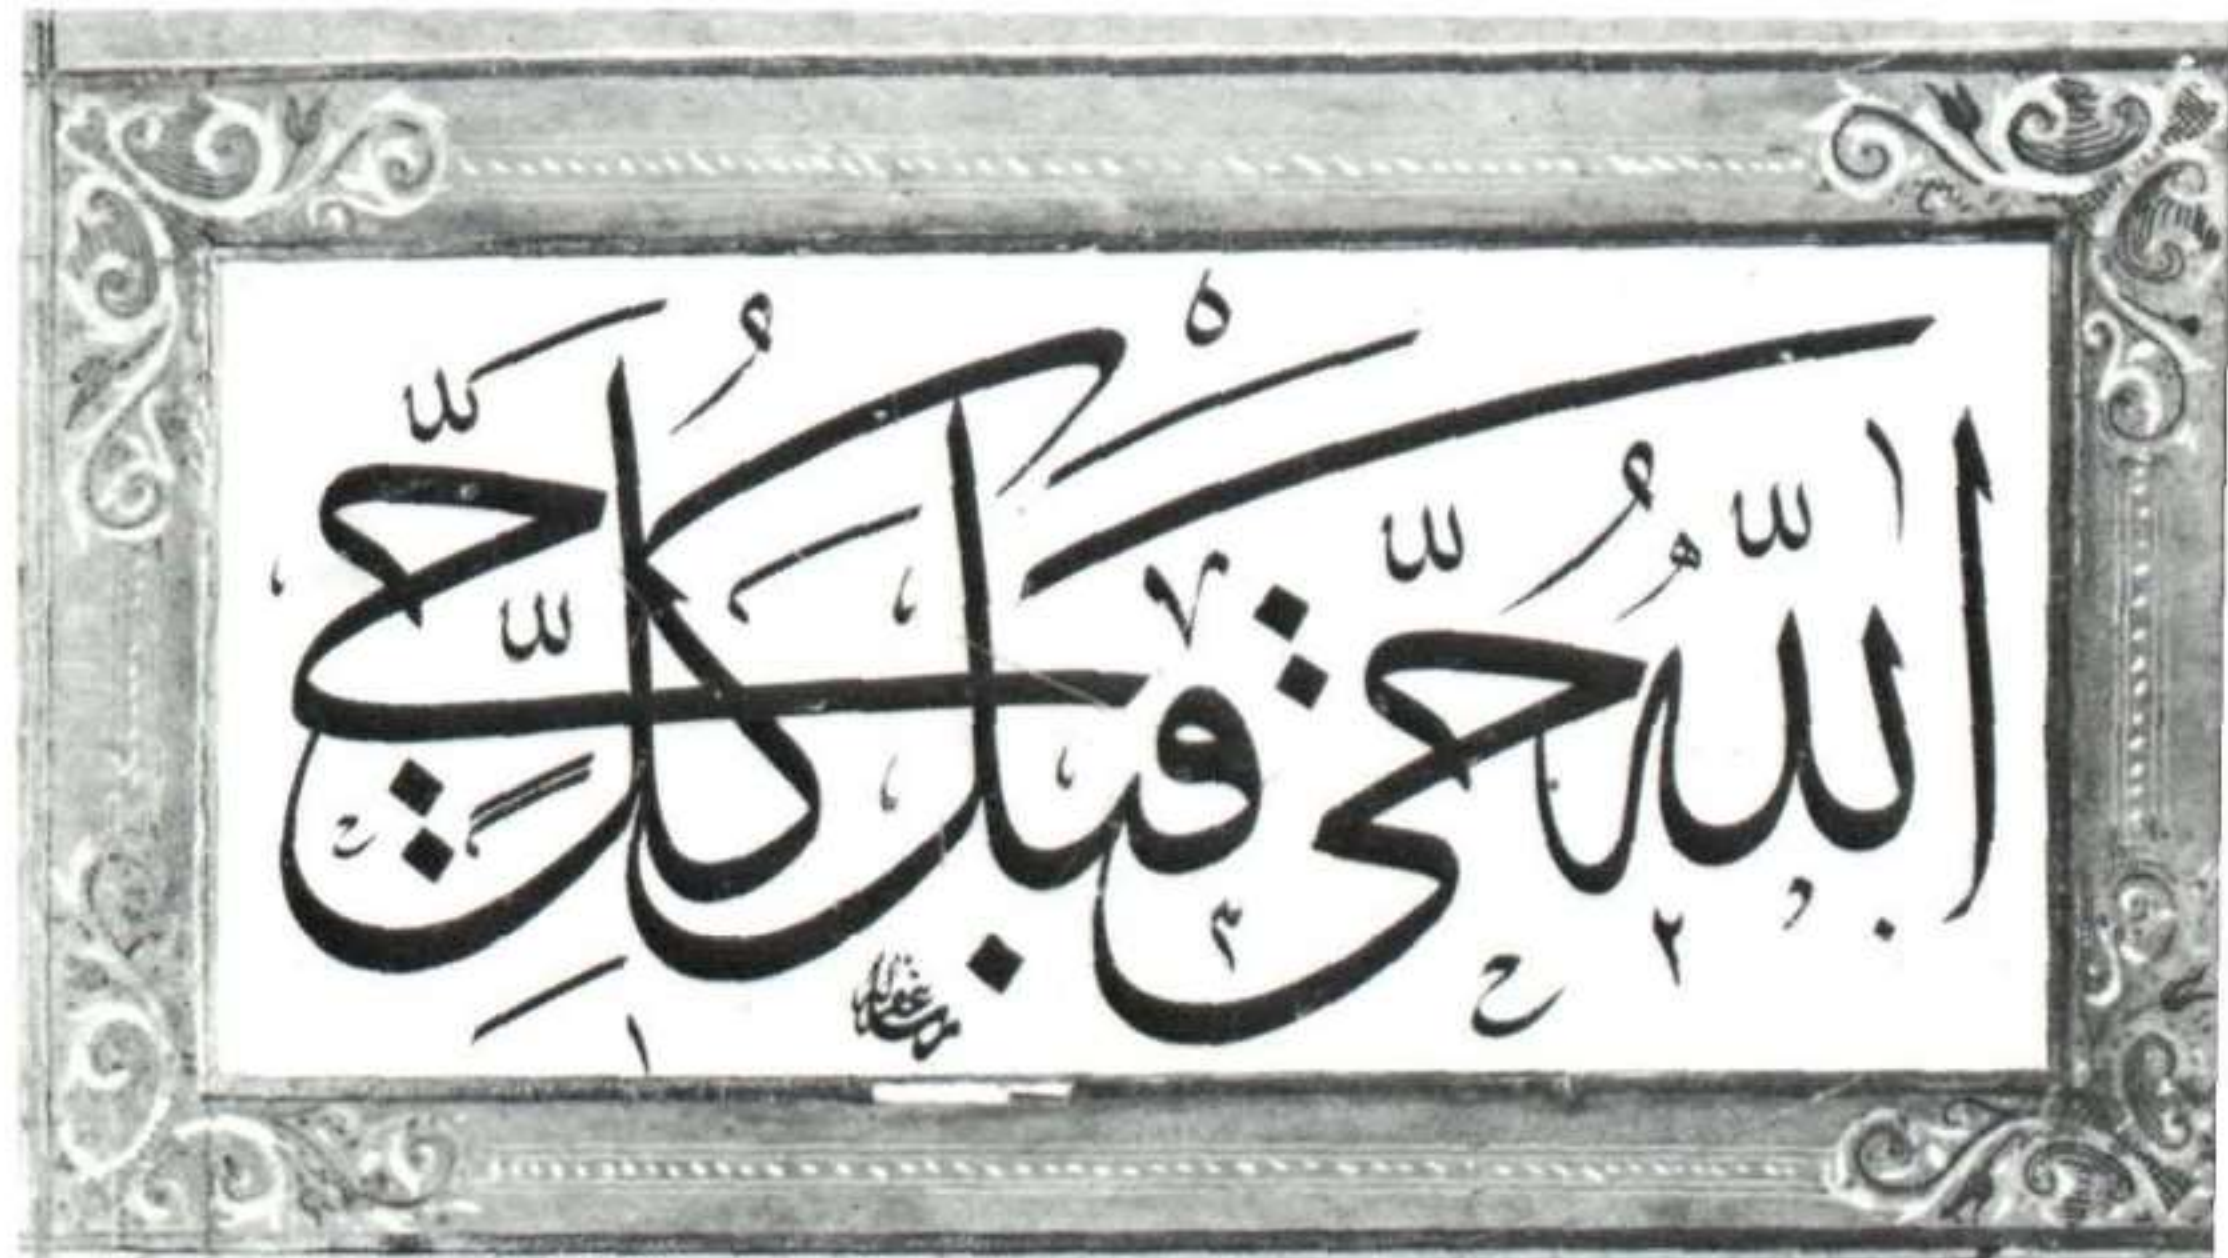 اللّٰهُ حَيٌّ قَبْلَ كُلِّ حَيٍّ